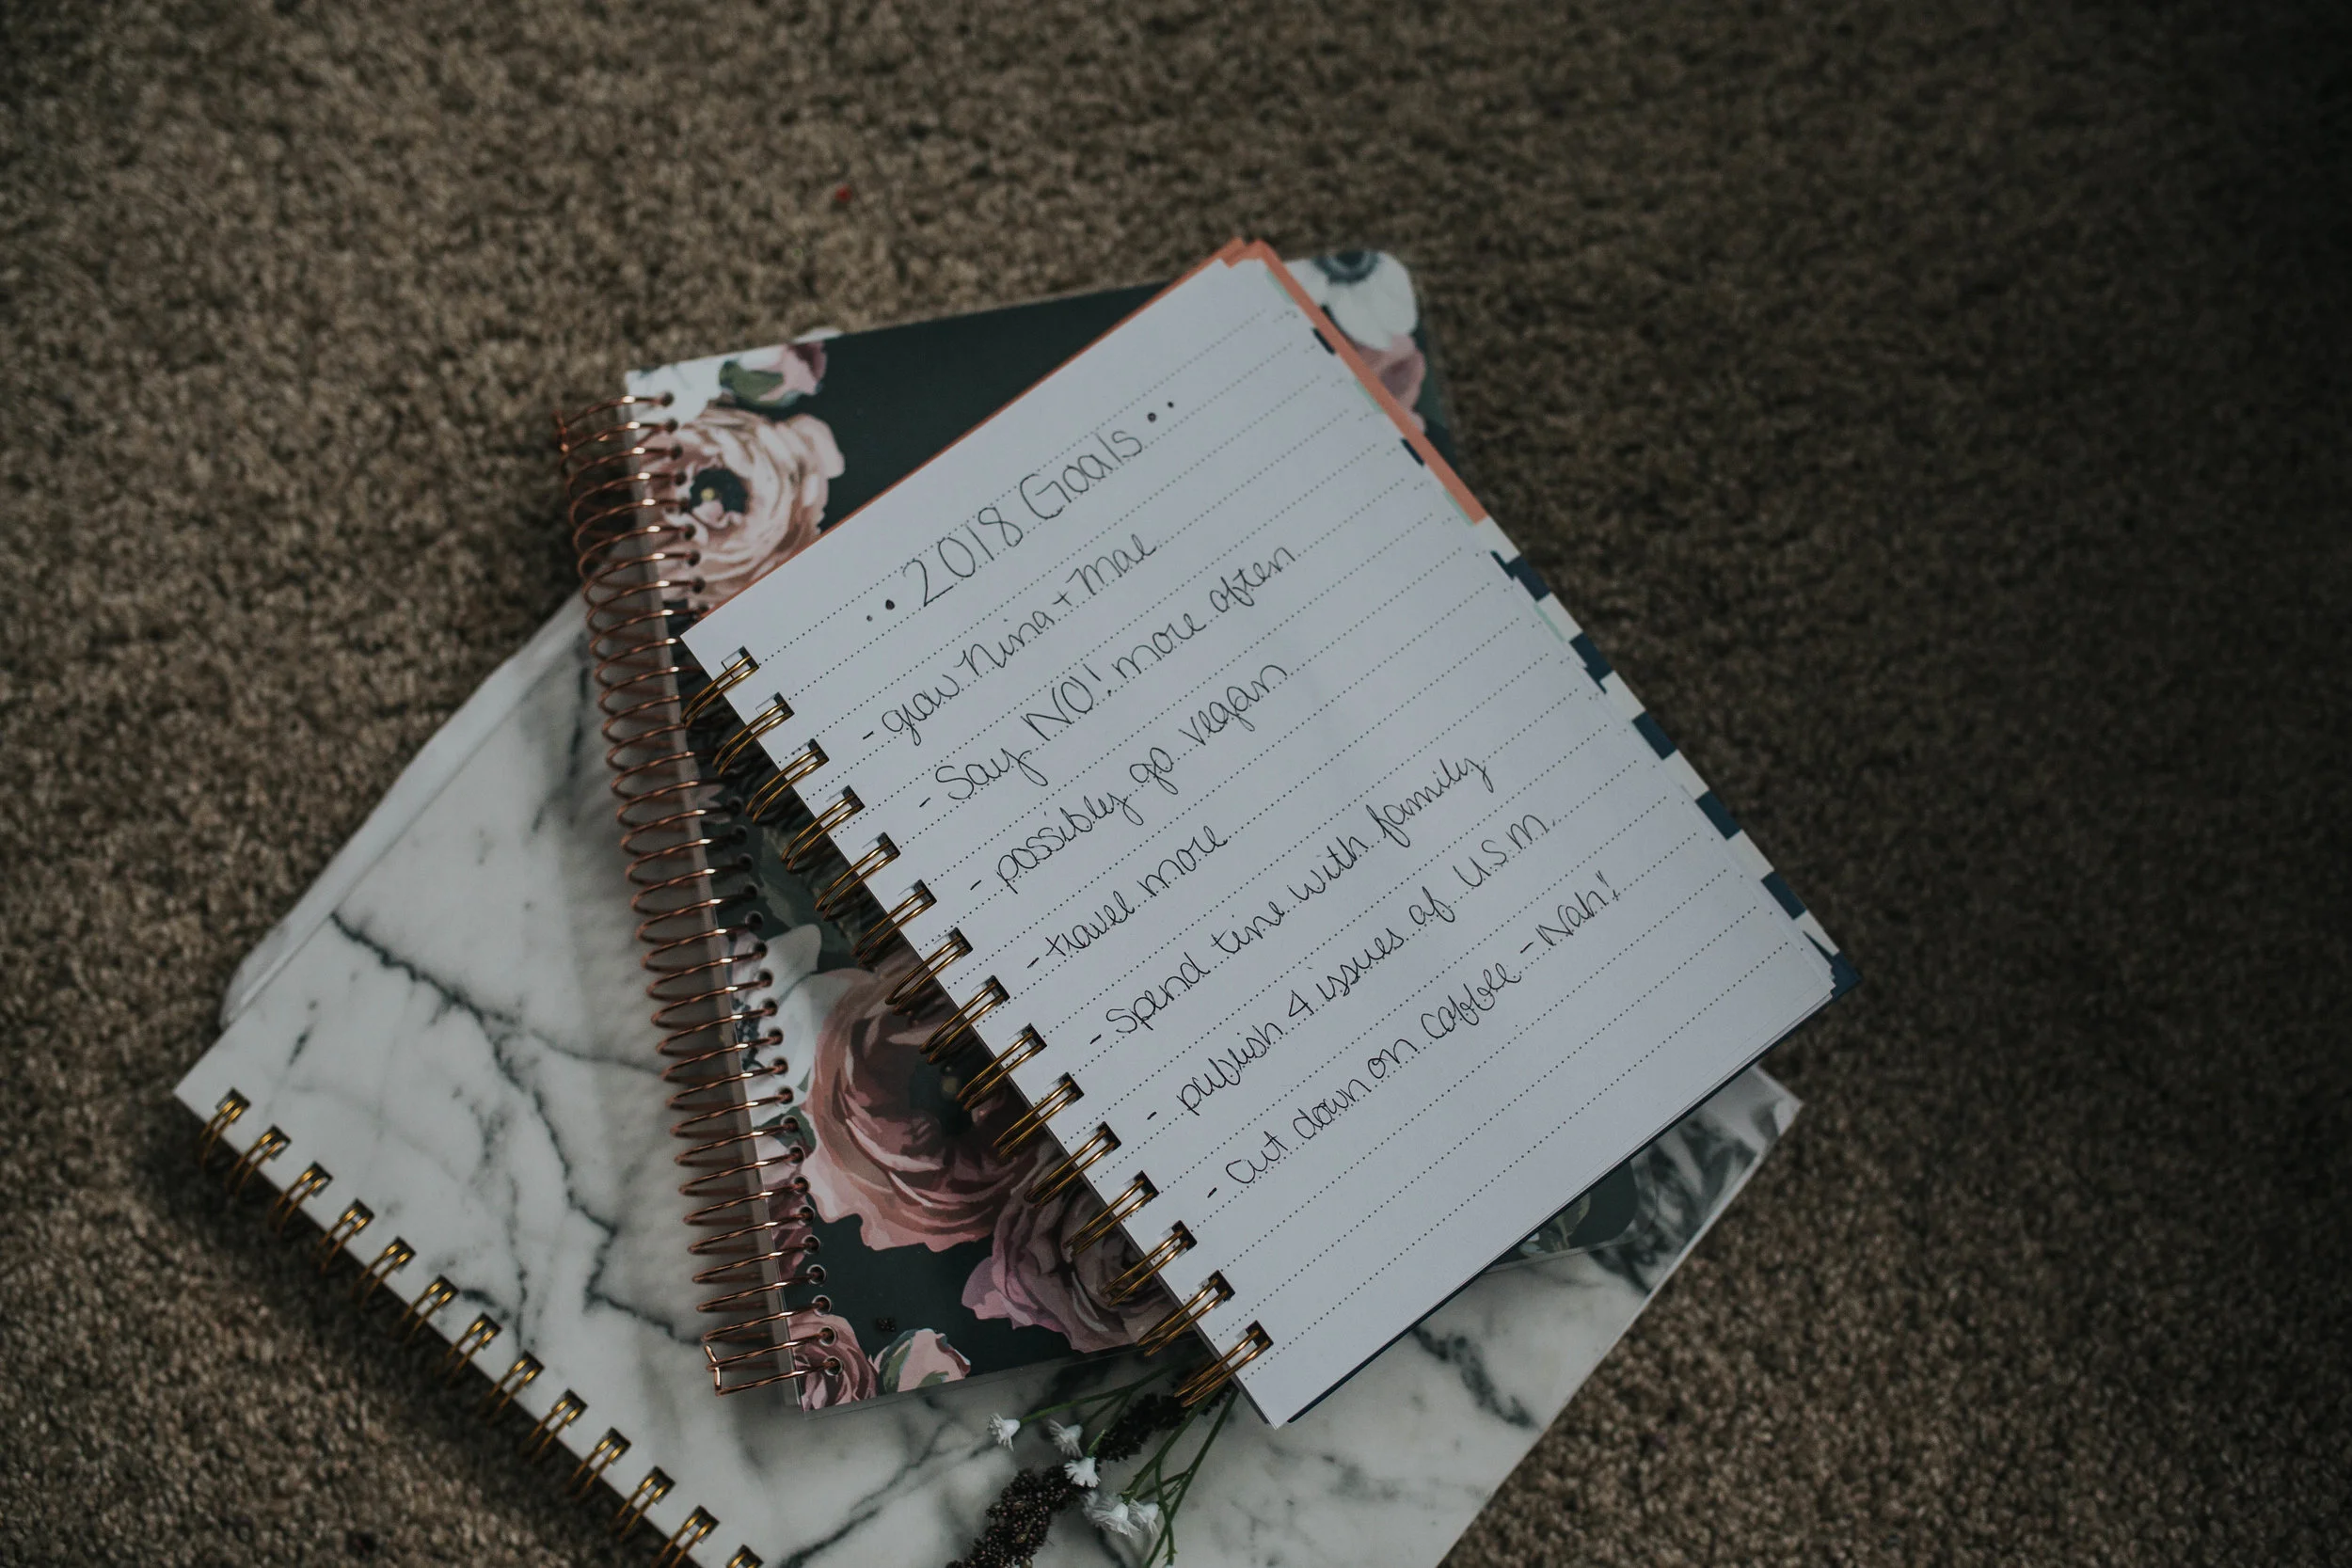 •• 2018 Goals ••
- grow Nina + Mae
- Say NO! more often
- possibly go vegan
- travel more
- Spend time with family
- publish 4 issues of U.S.M.
- cut down on coffee - Nah!